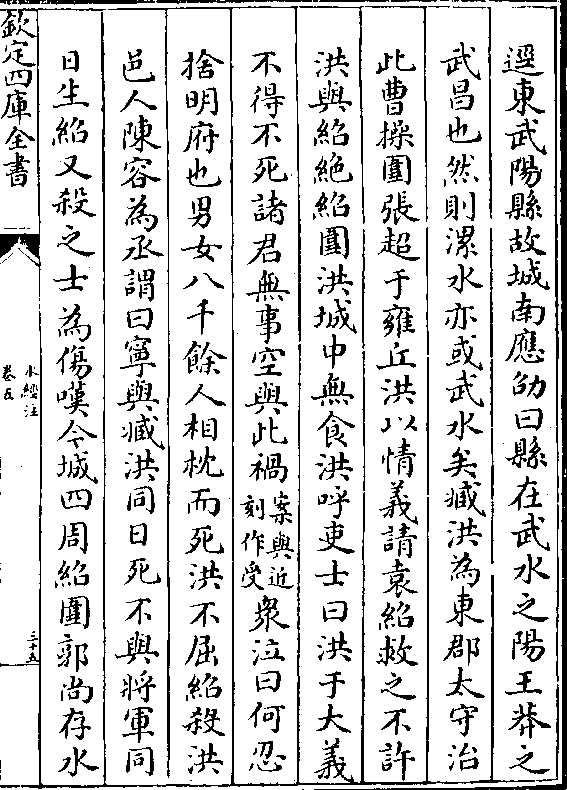 逕東武陽縣故城南應劭曰縣在武水之陽王莽之
武昌也然則漯水亦或武水矣臧洪為東郡太守治
此曹操圍張超于雍丘洪以情義請袁紹救之不許
洪與紹絶紹圍洪城中無食洪呼吏士曰洪于大義
不得不死諸君無事空與此禍案與近刻作受衆泣曰何忍
捨明府也男女八千餘人相枕而死洪不屈紹殺洪
邑人陳容為丞謂曰寧與臧洪同日死不與將軍同
日生紹又殺之士為傷嘆今城四周紹圍郭尚存水
欽定四庫全書
水經注
卷五
三十五